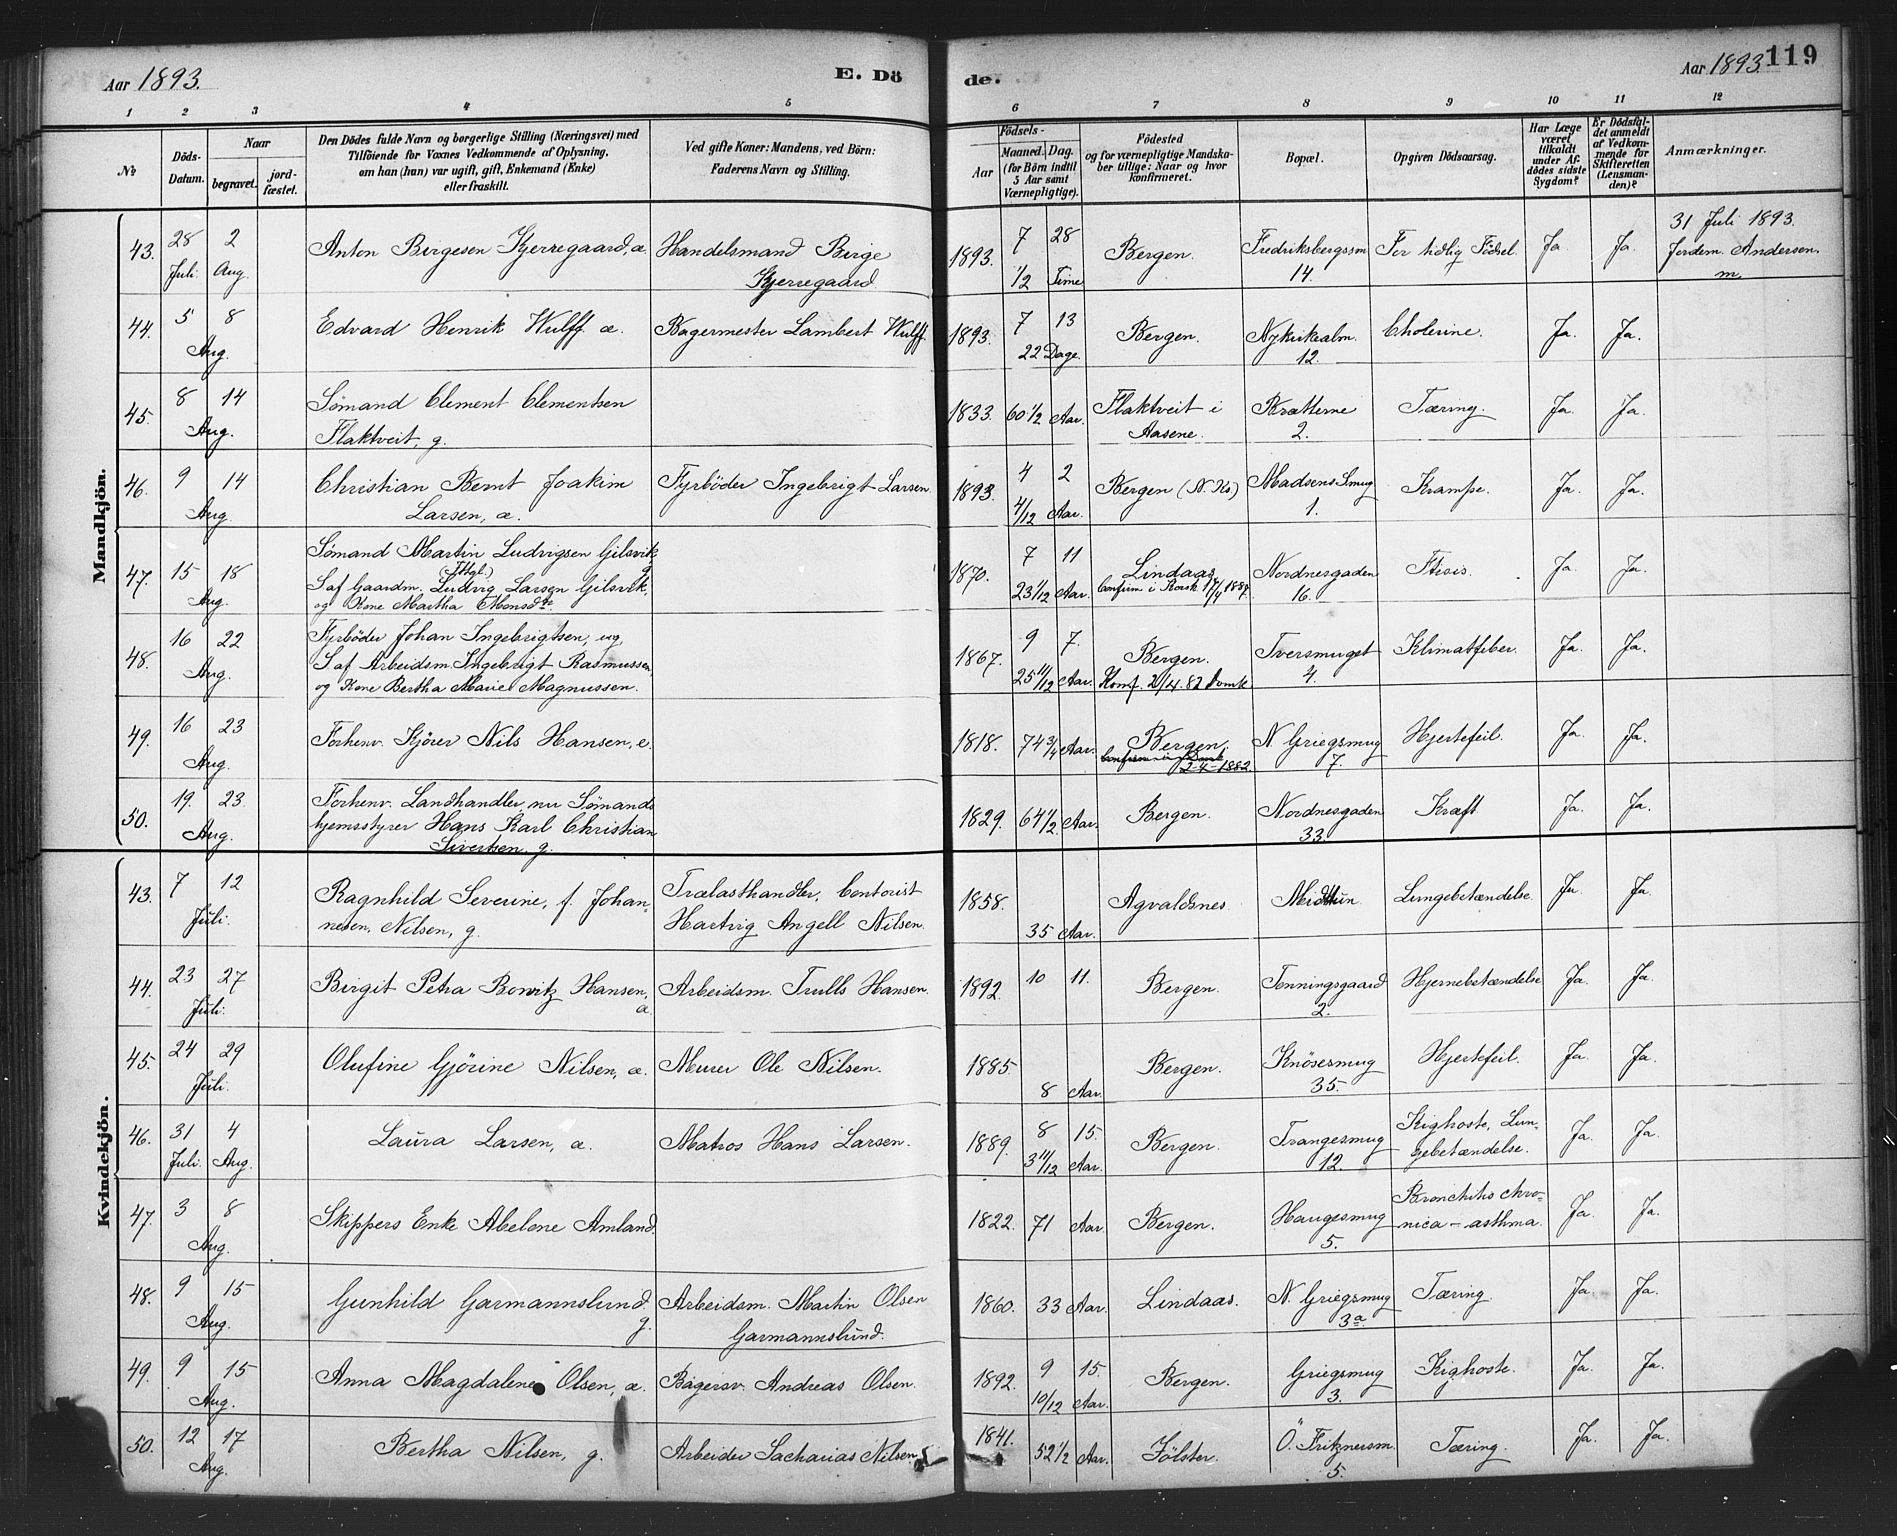 Aar 1893.
E. Dö
de.
Aar 1893.
119
1 2 3 4 5 6 7 8 9 10 11 12
№
Döds-Datum.
Naar
begravet.
jord-fæstet.
Den Dödes fulde Navn og borgerlige Stilling (Næringsvei) med
Tilföiende for Voxnes Vedkommende af Oplysning,
om han (hun) var ugift, gift, Enkemand (Enke)
eller fraskilt.
Ved gifte Koner: Mandens, ved Börn:
Faderens Navn og Stilling.
Födsels-
Aar
Maaned. Dag.
(for Börn indtil
5 Aar samt
Værnepligtige).
Födested
og for værnepligtige Mandska-
ber tillige: Naar og hvor
konfirmeret.
Bopæl.
Opgiven Dödsaarsag.
Har Læge
været
tilkaldt
under Af-
dödes sidste
Sygdom?
Er Dödsfal-
det anmeldt
af Vedkom-
mende for
Skifteretten
(Lensman-
den)?
Anmærkninger.
Mandkjön.
43. 28 Juli 2 Aug. Anton Birgesen Kjerregaard, æ. Handelsmand Birge
Kjerregaard 1893. 7 28 1/2 Time Bergen. Fredriksbergssm 14. For tidlig Födsel Ja Ja. 31 Juli 1893.
Jordem. Andersen
m.
44. 5 8 Aug. Edvard Henrik Wulff æ. Bagermester Lambert Wulff. 1893. 7 13 22 Dage Bergen. Nykirkealm. 12. Cholerine. Ja. Ja.
45. 8 14 Aug. Sömand Clement Clementsen
Flaktveit, g. 1833. 60 1/2 Aar. Flaktveit i
Aasene. Krætterne 2. Tæring. Ja. Ja.
46. 9 14 Aug. Christian Bernt Joakim
Larsen, æ. Fyrböder Ingebrigt Larsen 1893. 4 2 4/12 Aar. Bergen (N. Ks) Madsens Smug 1. Krampe. Ja. Ja.
47. 15 18 Aug. Sömand Martin Ludvigsen Gilsvik
S af Gaardm. Ludvig Larsen Gilsvik,
og Kone Martha Monsd. 1870. 7 11 23 1/12 Aar. Lindaas.
Confirm. i Korsk 17/4 1887. Nordnesgaden 16. Ftisis. Ja. Ja.
48. 16 22 Aug. Fyrböder Johan Ingebrigtsen, ug,
S af Arbeidsm. Ingebrigt Rasmussen
og Kone Bertha Marie Magnussen. 1867. 9 7. 25 11/12 Aar. Bergen.
Konf. 2/4.82 Domk Tversmuget 4. Klimatfeber. Ja. Ja.
49. 16 23 Aug. Forhenv. Kjörer Nils Hansen, e. 1818. 74 3/4 Aar. Bergen.
2-4-1882. N. Griegsmug 7. Hjertefeil. Ja. Ja.
50. 19. 23. Aug. Forhenv. Landhandler, nu Sömands
hjemsstyrer Hans Karl Christian
Sivertsen, g. 1829. 64 1/2 Aar. Bergen. Nordnesgaden 33. Kræft Ja. Ja.
Kvindekjön.
43. 7 12 Juli. Ragnhild Severine, f. Johan-
nesen, Nilsen, g. Trælasthandler, Contorist
Hartvig Angell Nilsen. 1858. 35 Aar. Agvaldsnes. Midttun. Lungebetændelse. Ja Ja.
44. 23 27 Juli. Birgit Petra Bowitz Hansen,
æ. Arbeidsm. Trulls Hansen. 1892. 10 11. Bergen. Tenningsgaard 2. Hjernebetændelse Ja. Ja.
45. 24 29 Juli. Olufine Gjörine Nilsen, æ. Murer Ole Nilsen. 1885. 8 Aar. Bergen. Knösesmug 35. Hjertefeil. Ja. Ja.
46. 31 Juli. 4 Aug. Laura Larsen, æ. Matros Hans Larsen. 1889. 8 15. 3 11/12 Aar. Bergen. Trangesmug 12. Kighoste, Lun-
gebetændelse. Ja. Ja.
47. 3 8 Aug. Skippers Enke Abelone Amland. 1822. 71 Aar. Bergen. Haugesmug 5. Bronchitis chro-
nica - asthma. Ja. Ja.
48. 9 15 Aug. Gunhild Garmannslund.
g. Arbeidsm. Martin Olsen
Garmannslund. 1860. 33 Aar. Lindaas. N. Griegsmug 3a. Tæring. Ja. Ja.
49. 9 15 Aug. Anna Magdalene Olsen, æ. Bagersv. Andreas Olsen. 1892. 9 15. 10/12 Aar. Bergen. Griegsmug 3. Kighoste. Ja. Ja.
50. 12 17 Aug. Bertha Nilsen, g. Arbeider Sacharias Nilsen 1841. 52 1/2 Aar. Jölster. Ö. Fritznersm. 5. Tæring. Ja. Ja.